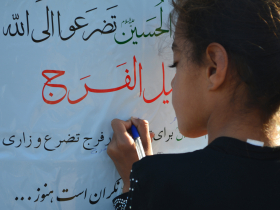 الحسین تضرعوا الی الله
یل الفرج
برای فرج تضرع و زاری
نگران است هنوز ...